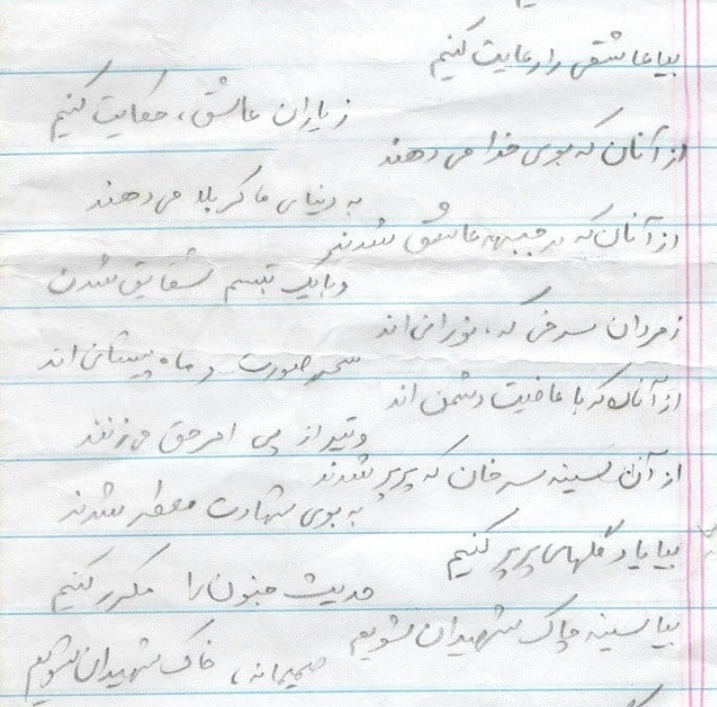 بیا عاشقی را رعایت کنیم
ز یاران عاشق، حکایت کنیم
از آنان که بوی خدا می دهند
به دنیای ما کربلا می دهند
از آنان که در جبهه عاشق شدند
و با یک تبسم شقایق شدن
ز مردان سرخی که، نورانی اند
سحر صورت و ماه پیشانی اند
از آنان که با عافیت دشمن اند
و تیر از پی امر حق می زنند
از آن سینه سرخان که پرپر شدند
به بوی شهادت معطر شدند
بیا یاد گلهای پرپر کنیم
حدیث جنون را مکرر کنیم
بیا سینه چاک شهیدان شویم
صمیمانه، خاک شهیدان شویم